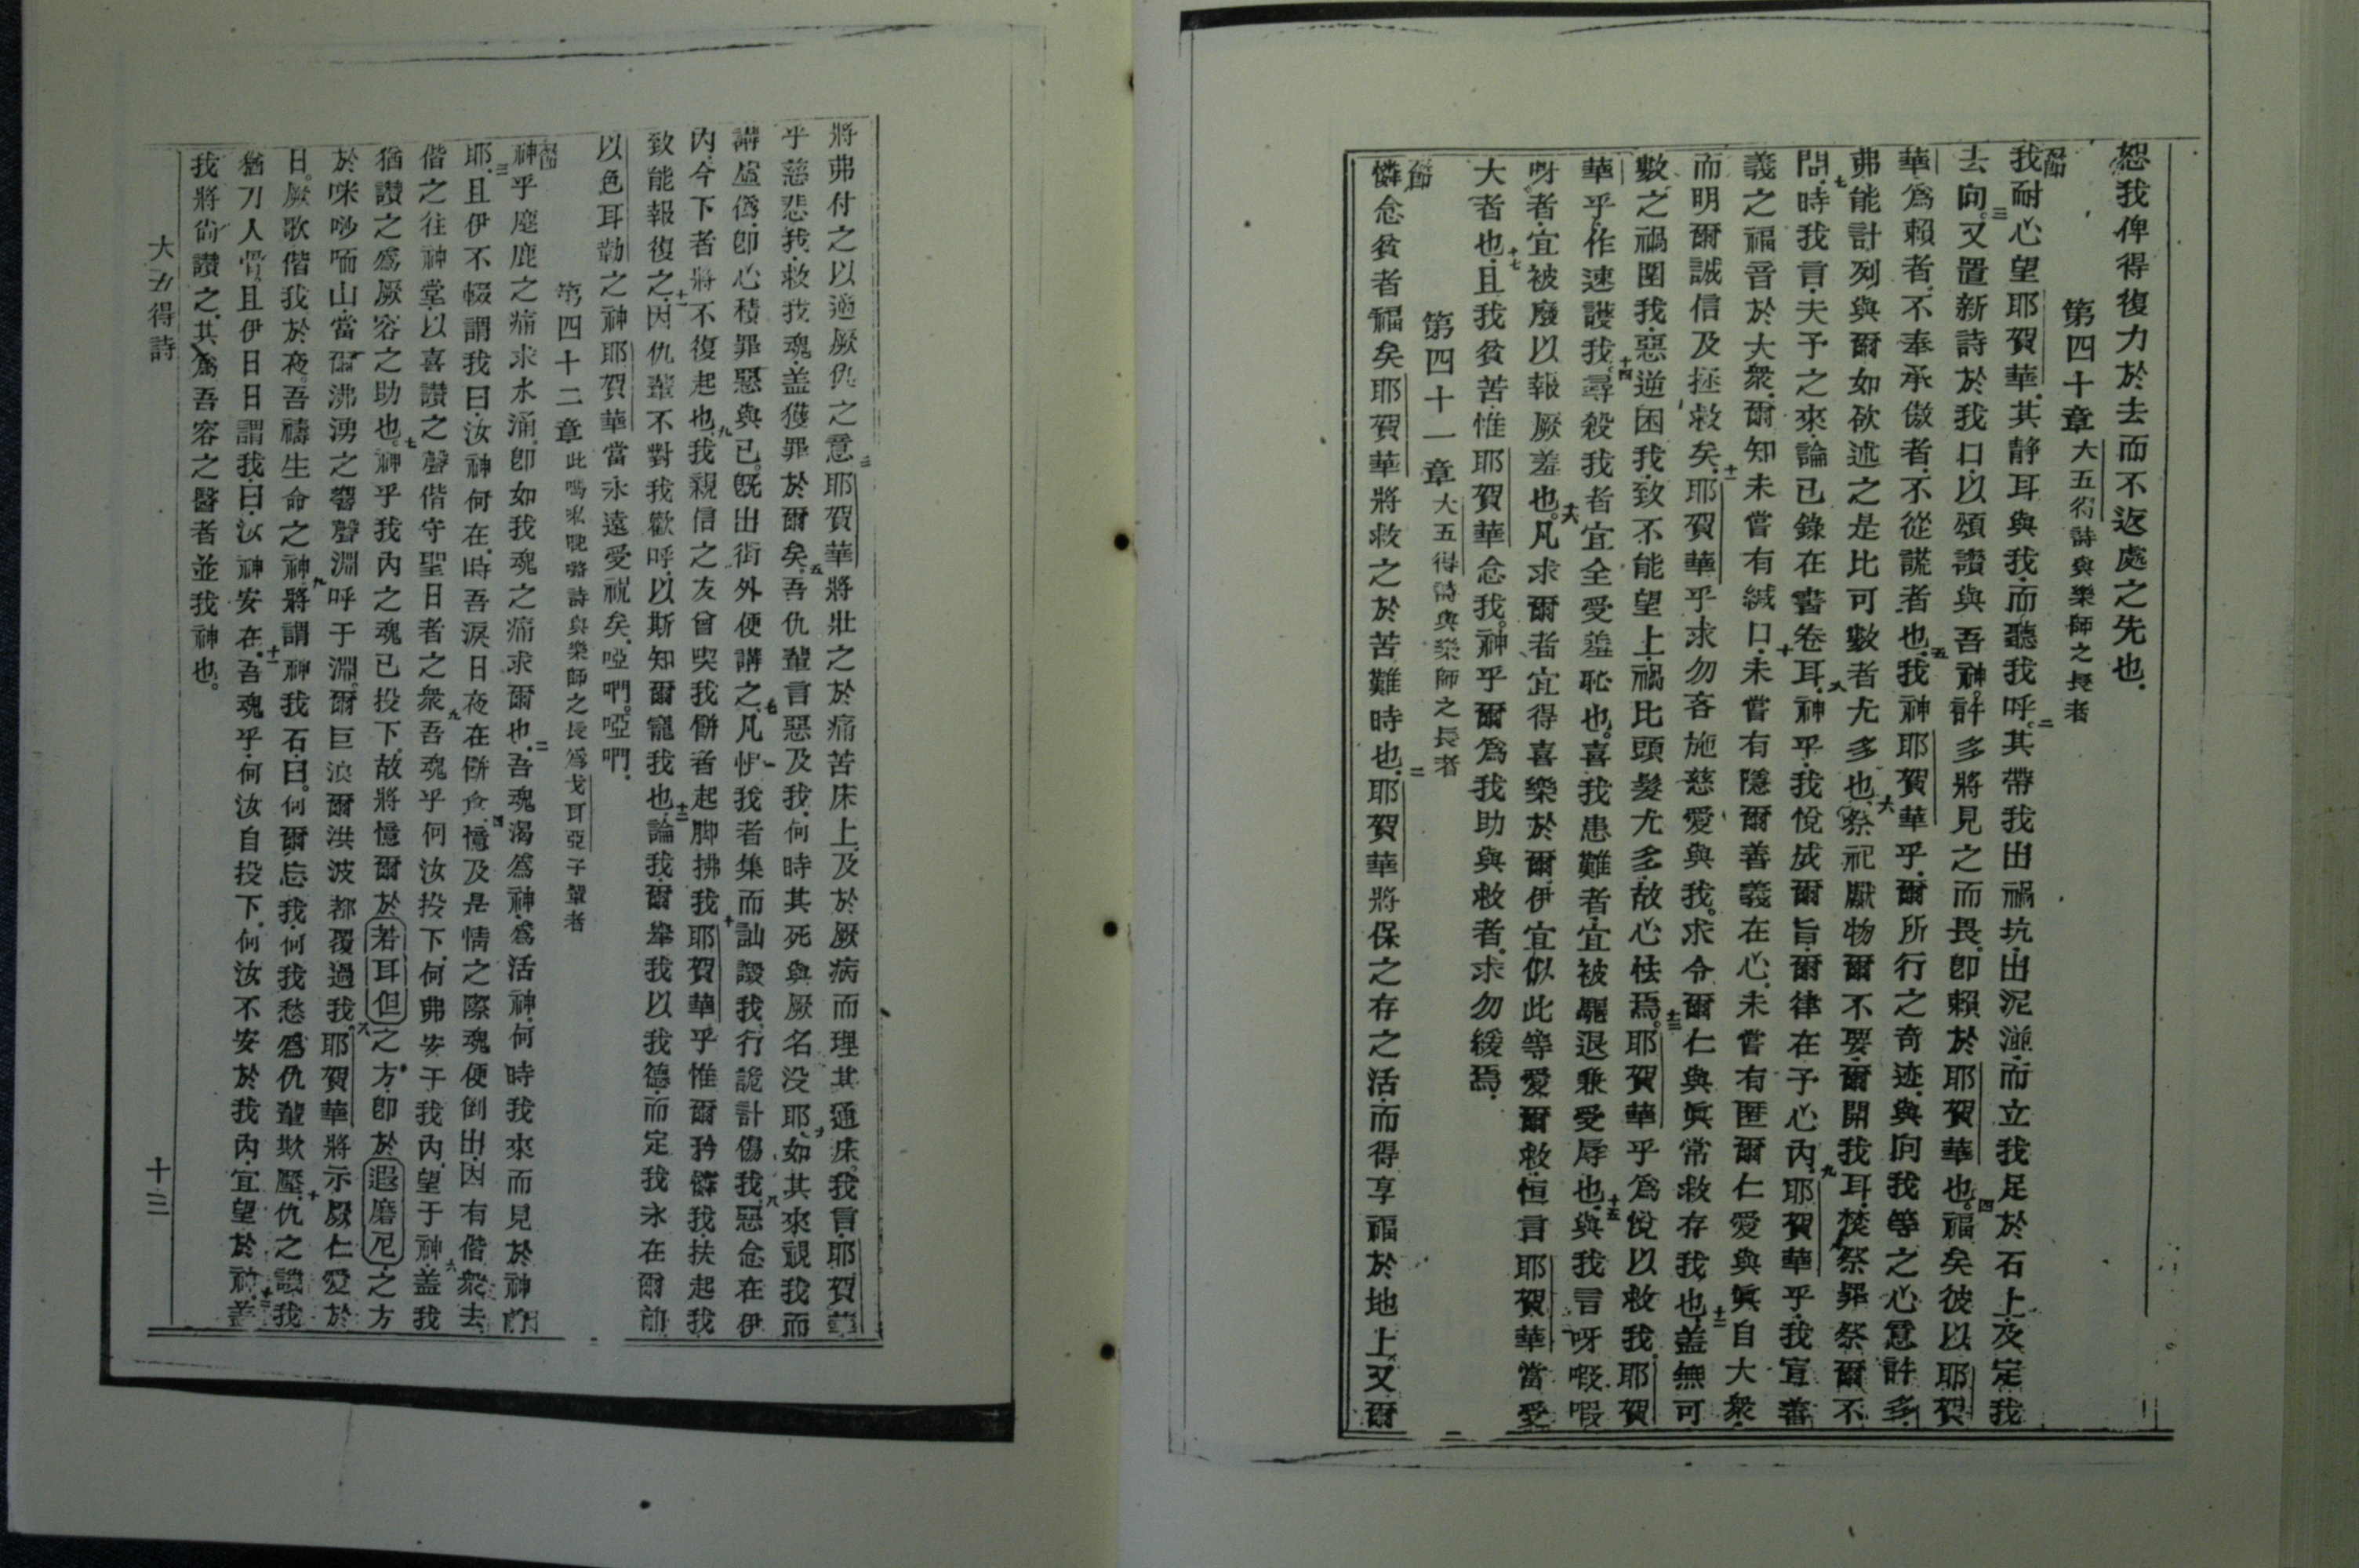 恕我俾得復力於去而不返處之先也
第四十章 大五得詩與樂師之長者
我耐心望耶賀華其靜耳與我而聽我呼二其帶我出禍坑出泥漨而立我足於石上及定我
去向三又置新詩於我口以頌讚與吾神許多將見之而畏卽賴於耶賀華也四福矣彼以耶賀
華爲賴者不奉承傲者不從謊者也五我神耶賀華乎爾所行之奇迹與向我等之心意許多
弗能計列與爾如欲述之是比可數者尤多也六祭祀厭物爾不要爾開我耳焚祭罪祭爾不
問七時我言夫予之來論已錄在書卷耳八神乎我悅成爾旨爾律在予心內九耶賀華乎我宣善
義之福音於大衆爾知未嘗有緘口十未嘗有隱爾善義在心未嘗有匿爾仁愛與眞自大衆
而明爾誠信及拯救矣十一耶賀華乎求勿吝施慈愛與我求令爾仁與眞常救存我也十二盖無可
數之禍圍我惡逆困我致不能望上禍比頭髮尤多故心怯焉十三耶賀華乎爲悅以救我耶賀
華乎作速護我十四尋殺我者宜全受羞恥也喜我患難者宜被驅退兼受辱也十五與我言呀嘏嘏
呀者宜被廢以報厥羞也十六凡求爾者宜得喜樂於爾伊宜似此等愛爾救恒言耶賀華當受
大者也十七且我貧苦惟耶賀華念我神乎爾爲我助與救者求勿緩焉
第四十一章 大五得詩與樂師之長者
節
憐念貧者福矣耶賀華將救之於苦難時也二耶賀華將保之存之活而得享福於地上又爾
將弗付之以適厥仇之意三耶賀華將壯之於痛苦床上及於厥病而理其通床我言耶賀華
乎慈悲我救我魂盖獲罪於爾矣五吾仇輩言惡及我何時其死與厥名没耶六如其來視我而
講虛僞卽心積罪惡與已旣出街外便講之七凡恨我者集而訕謗我行詭計傷我八惡念在伊
內今下者將不復起也九我親信之友曾喫我餅者起脚拂我十耶賀華乎惟爾矜憐我扶起我
致能報復之十一因仇輩不對我歡呼以斯知爾寵我也十二論我爾舉我以我德而定我永在爾前
以色耳勒之神耶賀華當永遠愛祝矣啞㘖啞㘖
第四十二章 此嗎𠱂詩與樂師之長爲戈耳亞子輩者
節
神乎麈鹿之痛求水涌卽如我魂之痛求爾也二吾魂渴爲神爲活神何時我來而見於神前
耶三且伊不輟謂我曰汝神何在時吾淚日夜在餅食四憶及是情之際魂便倒出因有偕衆去
偕之往神堂以喜讚之聲偕守聖日者之衆五吾魂乎何汝投下何弗安于我內望于神六盖我
猶讚之爲厥容之助也七神乎我內之魂已投下故將憶爾於若耳但之方卽於遐磨尼之方
於咪唦𠲖山當爾沸湧之響聲淵呼于淵爾巨浪爾洪波都覆過我八耶賀華將示厥仁愛於
日厥歌偕我於夜吾禱生命之神九將謂神我石曰何爾忘我何我愁爲仇輩欺壓十仇之譏我
猶刀人骨且伊日日謂我曰汝神安在十一吾魂乎何汝自投下何汝不安於我內宜望於神十二盖
我將尙讚之其爲吾容之醫者並我神也
大五得詩
十三